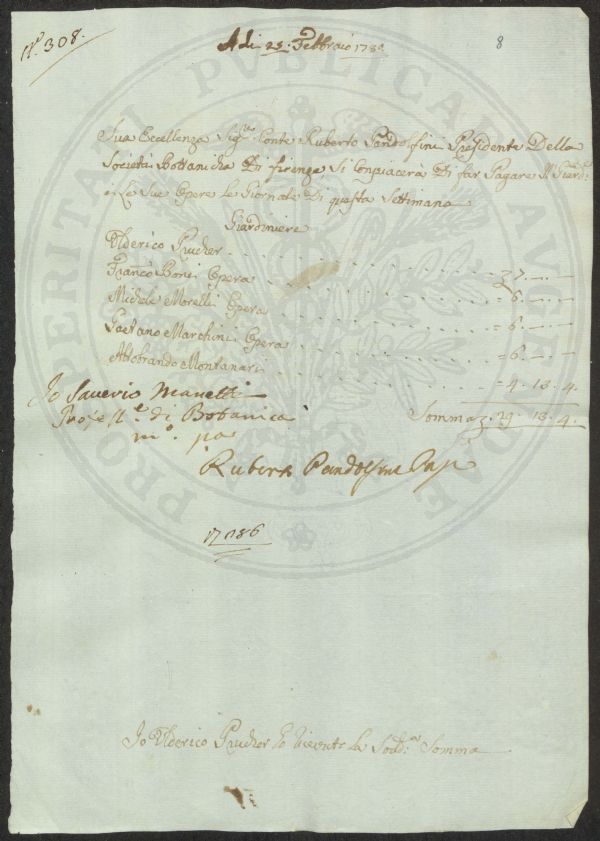 N.º 308.
8
Adì 23. Febbraio 178
Sua Eccellenza Sig.re Conte Ruberto Pandolfini Presidente Della
Società Bottanicha Di firenze Si Conpiacerà Di far Pagare Il Giard.e
e Le Sue Opere Le Giornate Di questa Settimana
Giardiniere
Ulderico Prucher = 7. — —
Franco Boni Opera = 6. — —
Michele Morelli Opera = 6. — —
Gaetano Marchini Opera = 6. — —
Aldobrando Montanari = 4. 13. 4.
Somma 29. 13. 4.
Io Saverio Manetti
Profess.e di Botanica
m.º pa
Ruberto Pandolfini
1786
Io Ulderico Prucher ho ricevuto la Sodd.a Somma
PROSPERITATI PUBLICAE AUGENDAE